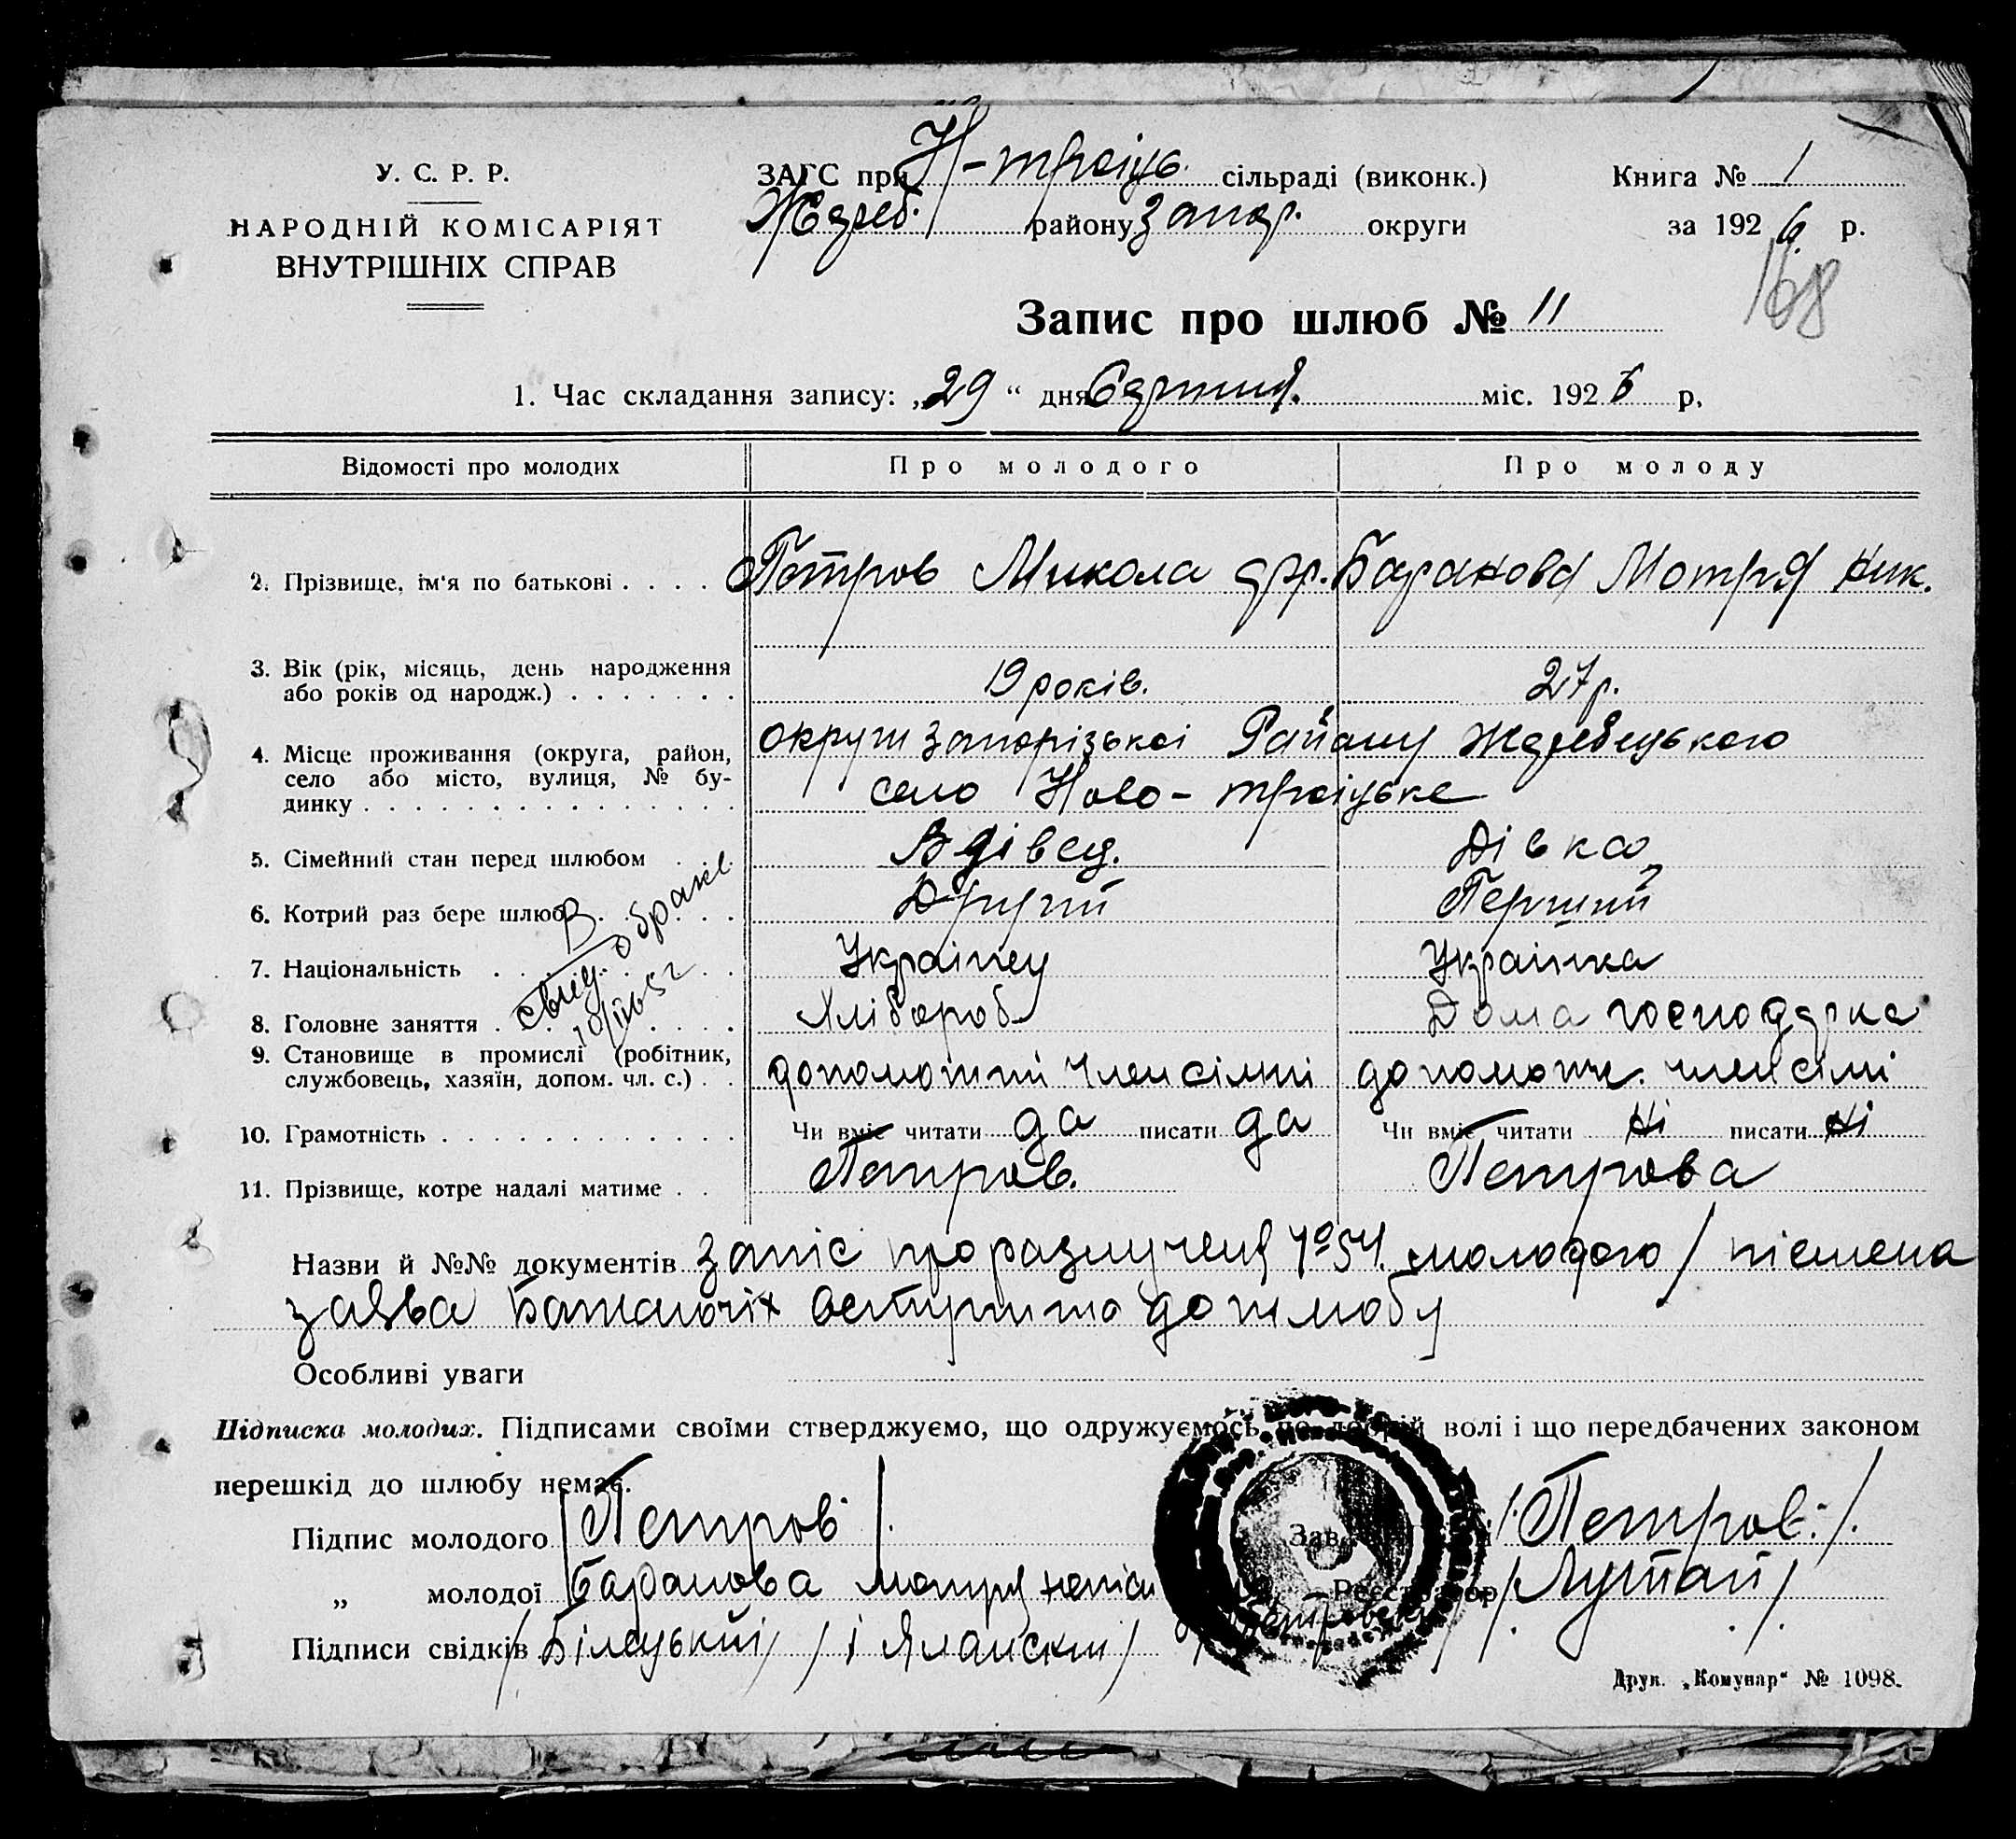 У. С. Р. Р.
НАРОДНІЙ КОМІСАРІЯТ
ВНУТРІШНІХ СПРАВ
ЗАГС при Н-троіць. сільраді (виконк.)
Жереб. району Запор. округи
Книга № 1
за 1926 р.
168
Запис про шлюб № 11
1. Час складання запису: „29“ дня Серпня. міс. 1926 р.
Відомості про молодих Про молодого Про молоду
2. Прізвище, ім'я по батькові . . . . Петров Микола Баранова Мотря Ник.
3. Вік (рік, місяць, день народження
або років од народж.) . . . . . . . 19 років. 27 р.
4. Місце проживання (округа, район,
село або місто, вулиця, № бу-
динку . . . . . . . . . . . . . .
округи Запорізькоі Району Жеребецького
село Ново-троіцьке
5. Сімейний стан перед шлюбом . . . Вдівец. Дівка
6. Котрий раз бере шлюб . . . . Другий Перший
7. Національність . . . . . . . Українец Украінка
8. Головне заняття . . . . . . . Хлібороб Дома господарка
9. Становище в промислі (робітник,
службовець, хазяїн, допом. чл. с.) . . допоможний член сімні допоможн. член сімі
10. Грамотність . . . . . . . . . . . . Чи вміє читати да писати да Чи вміє читати Ні писати Ні
11. Прізвище, котре надалі матиме . . Петров. Петрова
В
свид. о браке
Назви й №№ документів запіс про разлученя № 54. молодого / пісмена
заява Бажаючіх вступити до шлюбу
Особливі уваги
Підписка молодих. Підписами своїми стверджуємо, що одружуємось по добрій волі і що передбачених законом
перешкід до шлюбу немає.
Підпис молодого /Петров/. Зав. /:Петров:/.
„ молодої Баранова Мотря Реєстратор /.Лутай/.
Підписи свідків /Білецький/ /і Яланский/
Друк. „Комунар“ № 1098.